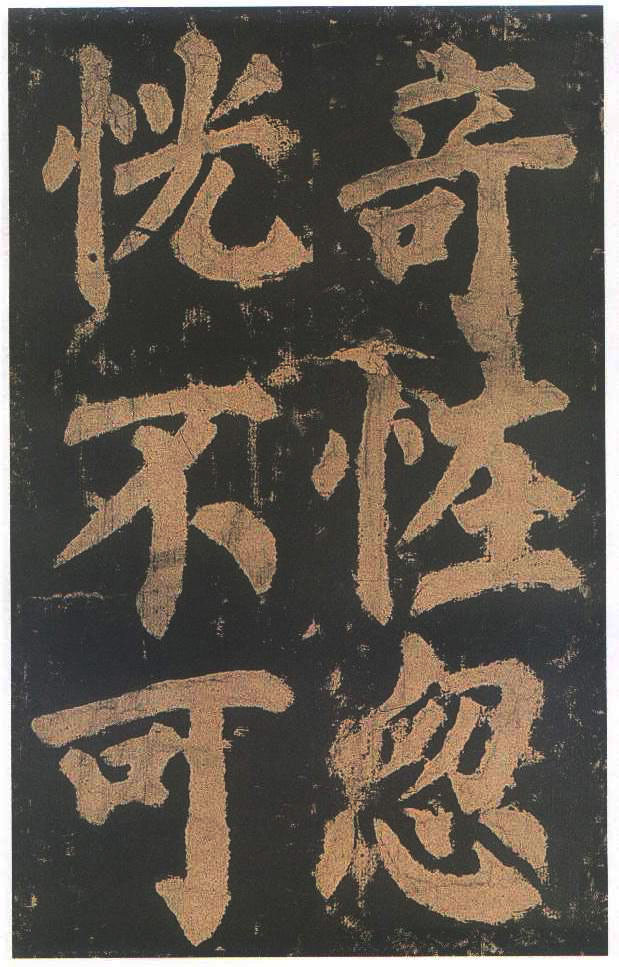 竒怪忽
恍不可